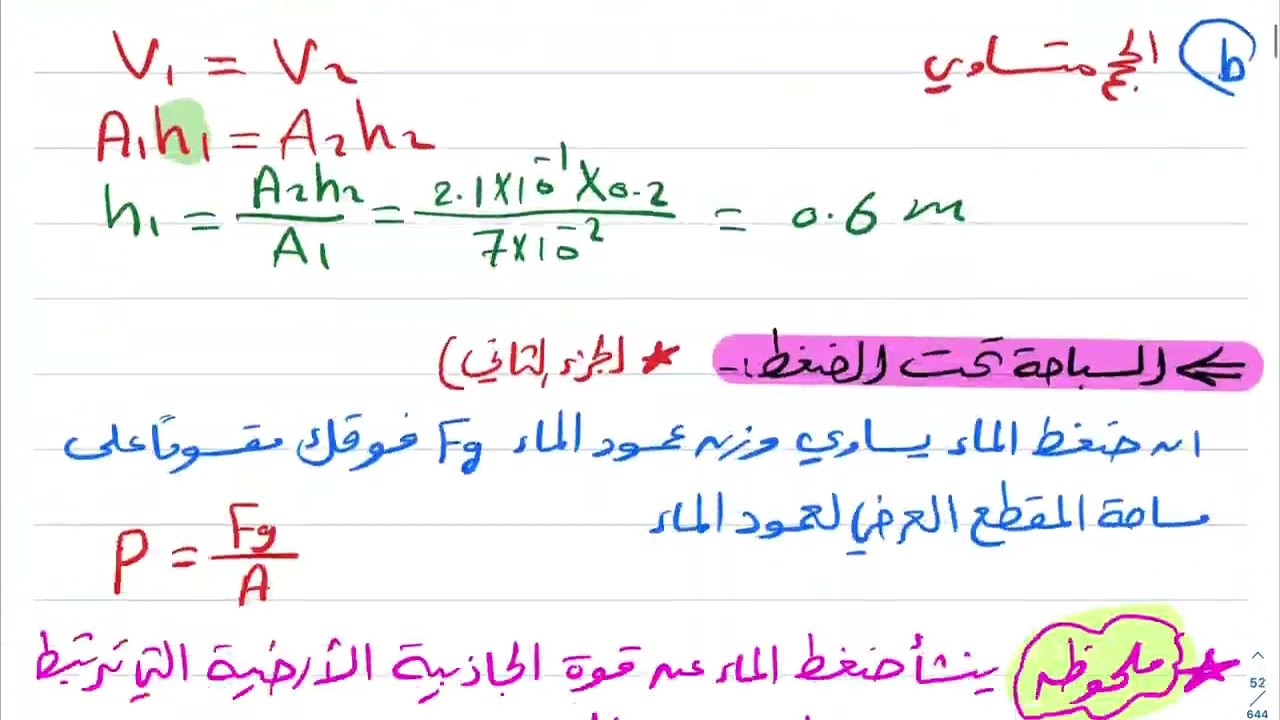 b الحجم متساوي
V₁ = V₂
A₁h₁ = A₂h₂
h₁ = A₂h₂ / A₁ = 2.1×10⁻¹ × 0.2 / 7×10⁻² = 0.6 m
← السباحة تحت الضغط:- ★ الجزء الثاني)
ان ضغط الماء يساوي وزن عمود الماء Fg فوقك مقسومًا على
مساحة المقطع العرضي لعمود الماء
P = Fg / A
★ ملحوظه) ينشأ ضغط الماء عن قوة الجاذبية الأرضية التي ترتبط
52
644